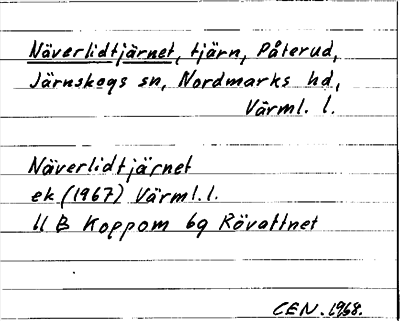 Näverlidtjärnet, tjärn, Påterud,
Järnskogs sn, Nordmarks hd,
Värml. l.
Näverlidtjärnet
ek (1967) Värml.l.
11 B Koppom 6g Rövattnet
CEN. 1968.